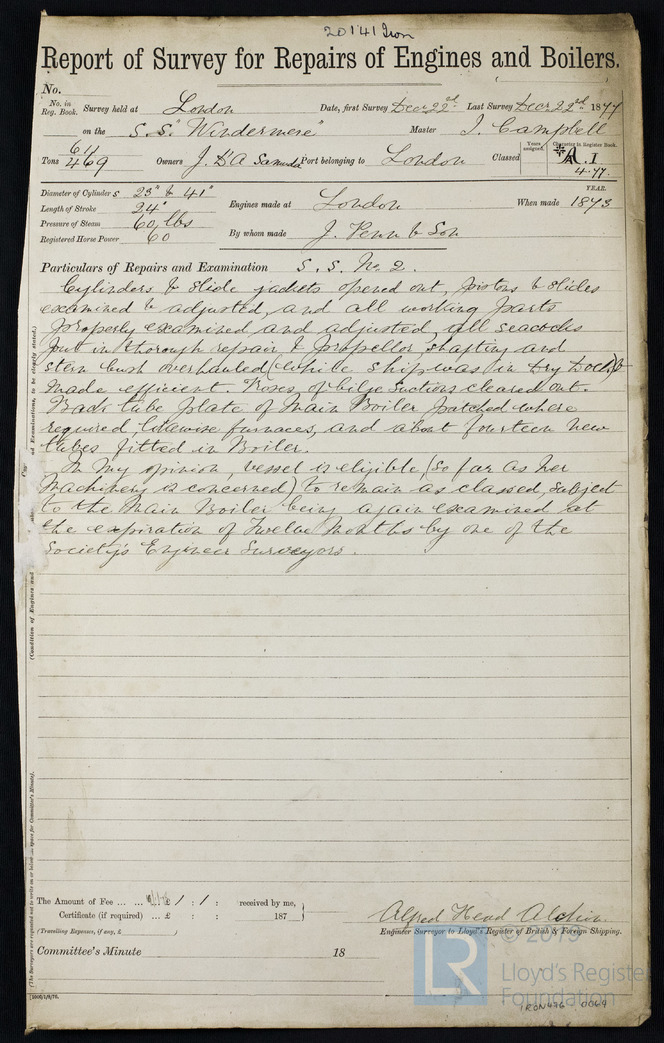 20141 Iron
Report of Survey for Repairs of Engines and Boilers.
No.
No. in Reg. Book. Survey held at London Date, first Survey Decr 22nd Last Survey Decr 22nd 1877
on the S.S. "Windermere" Master J. Campbell
Tons 469 Owners J. D'A Samuda Port belonging to London Classed Years assigned. Character in Register Book. A.1 4.77.
Diameter of Cylinders 23" & 41"
Length of Stroke 24"
Pressure of Steam 60 lbs
Registered Horse Power 60
Engines made at London When made YEAR. 1873
By whom made J. Penn & Son
Particulars of Repairs and Examination S. S. No. 2.
Cylinders & slide jackets opened out, pistons & slides
examined & adjusted, and all working parts
properly examined and adjusted, all seacocks
put in thorough repair & propellor, shafting and
stern bush overhauled (while ship was in Dry Dock) &
made efficient. Roses of bilge suctions cleared out.
Back tube plate of Main Boiler patched where
required, likewise furnaces, and about fourteen new
tubes fitted in Boiler.
In my opinion, vessel is eligible (so far as her
machinery is concerned) to remain as classed, subject
to the Main Boiler being again examined at
the expiration of Twelve Months by one of the
Society's Engineer Surveyors.
The Amount of Fee ... ... £ 1 : 1 : received by me,
Certificate (if required) ... £ : : 187
(Travelling Expenses, if any, £ )
Alfred Head
Engineer Surveyor to Lloyd's Register of British & Foreign Shipping.
Committee's Minute 18
(The Surveyors are requested not to write on or below space for Committee's Minute).
(Condition of Engines and
ad Examinations, to be clearly stated.)
© 2019
LR
Lloyd's Register
Foundation
IRON476-0069